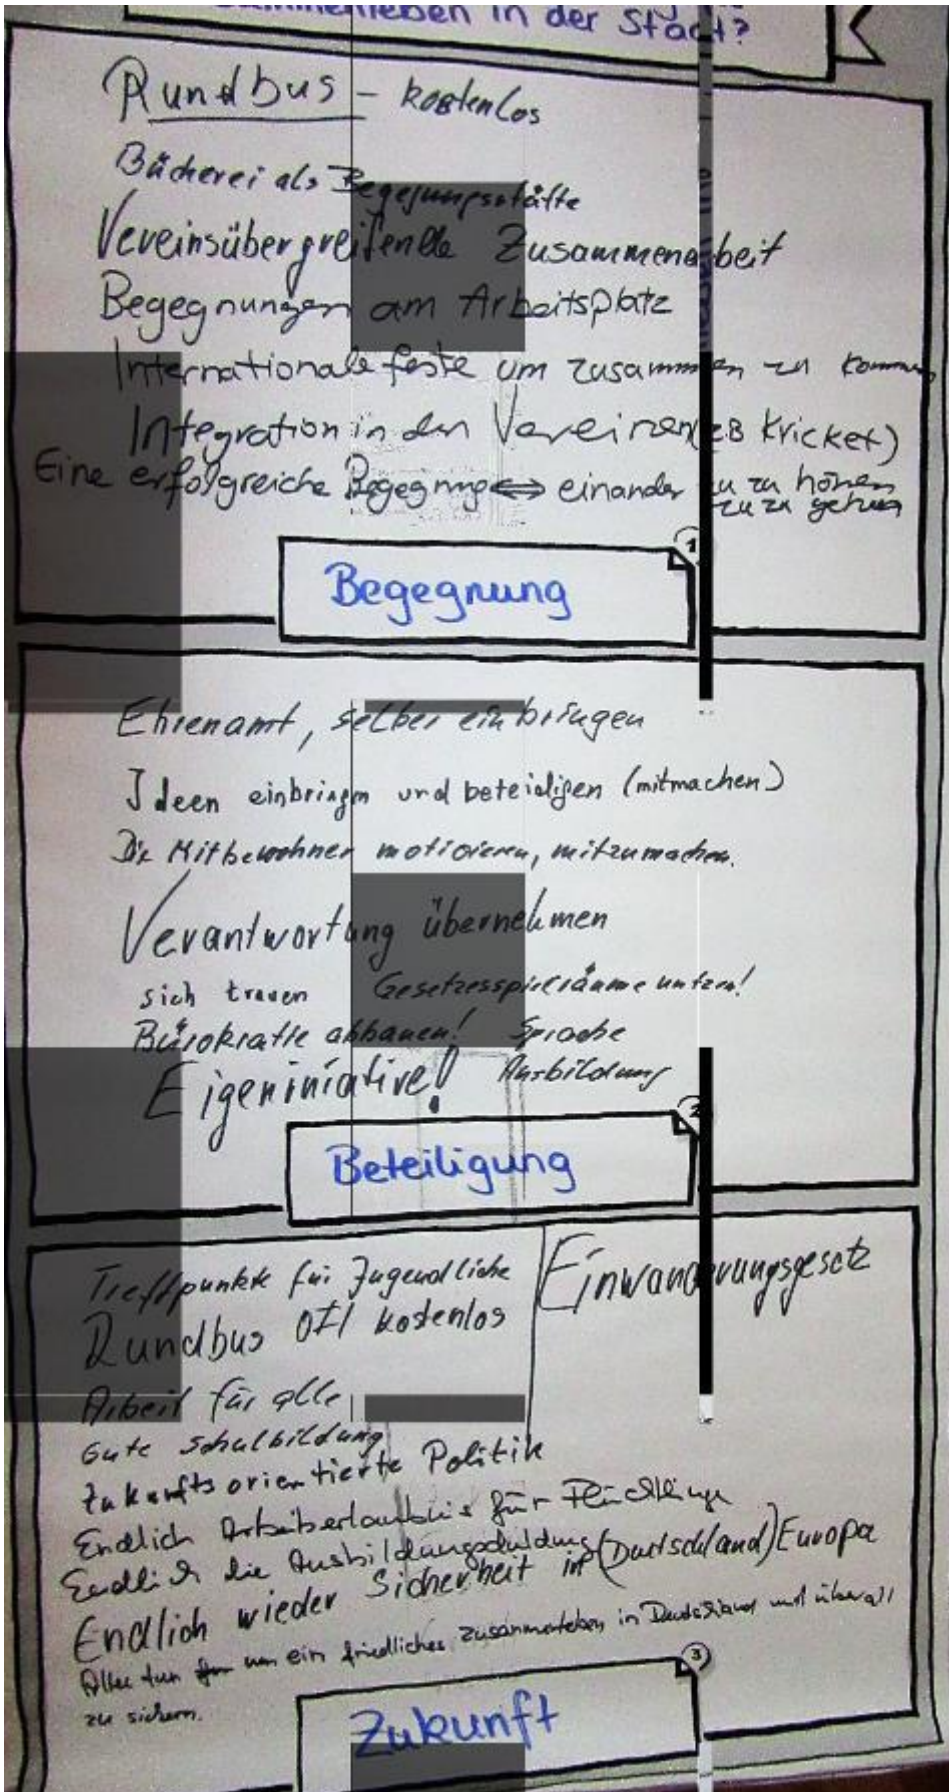 Zusammenleben in der Stadt?
Rundbus - kostenlos
Bücherei als Begegnungsstätte
Vereinsübergreifende Zusammenarbeit
Begegnungen am Arbeitsplatz
Internationale feste um zusammen zu kommen
Integration in den Vereinen (zB Kricket)
Eine erfolgreiche Begegnung ⇔ einander zu zu hören
zu zu gehen
1
Begegnung
Ehrenamt, selber einbringen
Ideen einbringen und beteiligen (mitmachen)
Die Mitbewohner motivieren, mitzumachen.
Verantwortung übernehmen
sich trauen Gesetzesspielräume nutzen!
Bürokratie abbauen! Sprache
Eigeniniative! Ausbildung
2
Beteiligung
Treffpunkte für Jugendliche
Rundbus kostenlos
Arbeit für alle
Gute Schulbildung
Zukunftsorientierte Politik
Einwanderungsgesetz
Endlich Arbeitserlaubnis für Flüchtlinge
Endlich die Ausbildungsduldung
Endlich wieder Sicherheit in (Deutschland) Europa
Alles tun um ein friedliches Zusammenleben in Deutschland und überall
zu sichern.
3
Zukunft